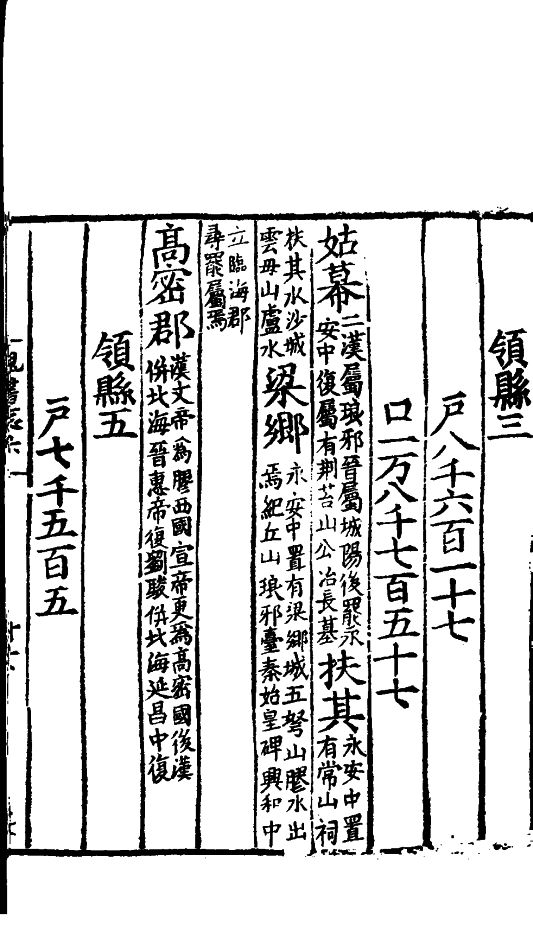 領縣三
戶八千六百一十七
口二万八千七百五十七
姑幕二漢屬琅邪晉屬城陽後罷永安中復屬有荆苔山公冶長墓扶其永安中置有常山祠
扶其水沙城雲母山盧水梁鄉永安中置有梁鄉城五弩山膠水出焉紀丘山琅邪臺秦始皇碑興和中
立臨海郡尋罷屬焉
高密郡漢文帝為膠西國宣帝更為高密國後漢併北海晉惠帝復劉駿併北海延昌中復
領縣五
戶七千五百五